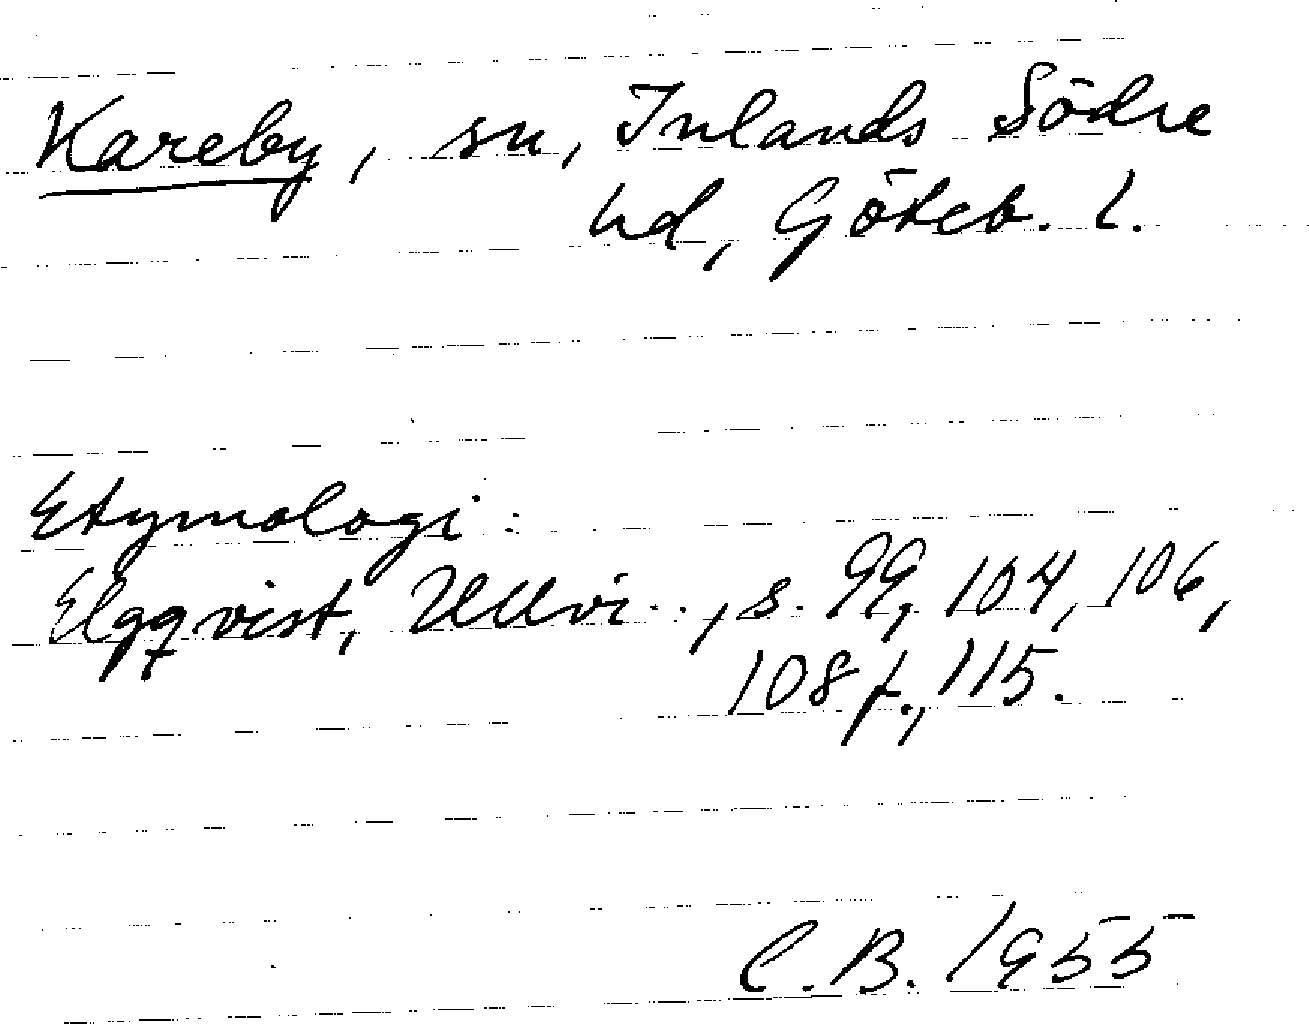 Kareby, sn, Inlands Södre
hd, Göteb. l.
Etymologi:
Elgqvist, Ullvi.., s. 99, 104, 106,
108 f., 115.
C.B. 1955